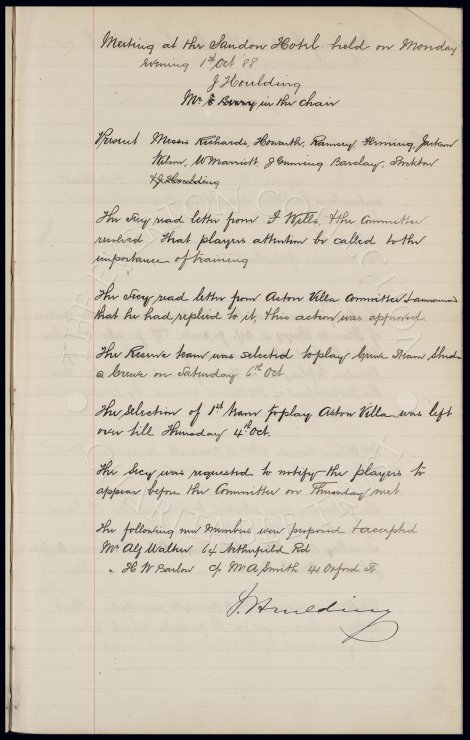 Meeting at the Sandon Hotel held on Monday
evening 1st Oct 88
J Houlding
Mr E Berry in the chair
Present Messrs Richards, Howarth, Ramsey, Fleming, Jackson
Wilson, W Marriott, J Gunning Barclay, Stockton
& J Houlding
The Secy read letter from F Wills, & the Committee
resolved that players attention be called to the
importance of training
The Secy read letter from Aston Villa Committee & announced
that he had replied to it, this action was approved
The Reserve team was selected to play Crewe Steam Sheds
@ Crewe on Saturday 6th Oct
The Selection of 1st team to play Aston Villa was left
over till Thursday 4th Oct.
The Secy was requested to notify the players to
appear before the Committee on Thursday next
The following new members were proposed & accepted
Mr Alf Walker 64 Rd
" H W Barlow c/o Mr A Smith 41 Oxford St
J. Houlding
THE EVERTON COLLECTION